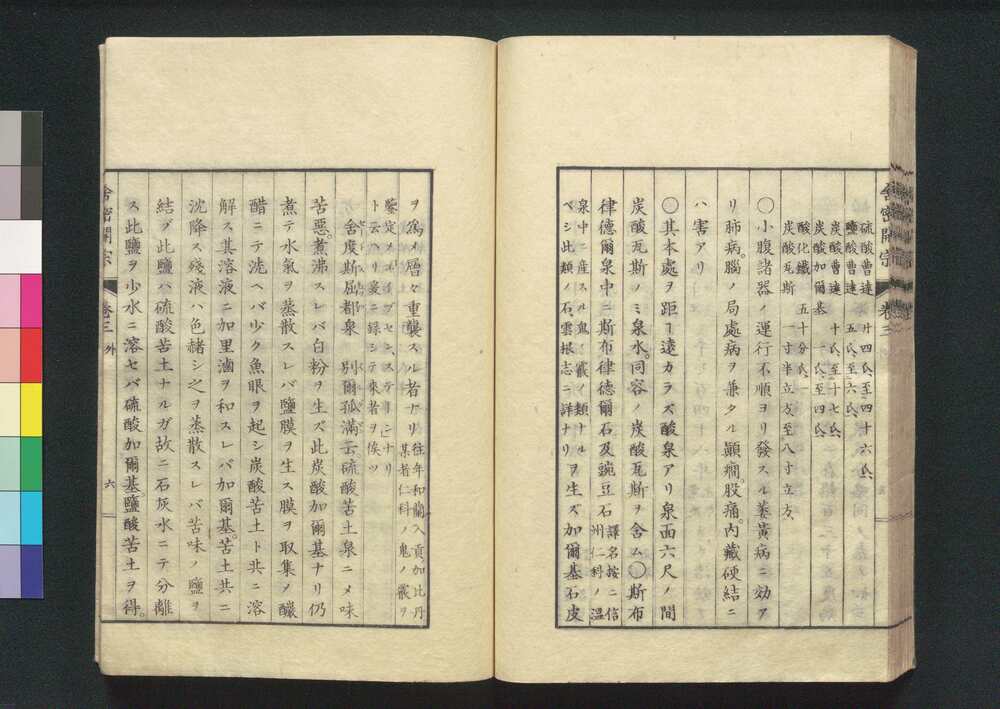 舎密開宗 巻三
硫酸曹達 廿四氏、至四十六氏、
鹽酸曹達 五氏、至六氏、
炭酸曹達 十氏、至十七氏、
炭酸加爾基 一氏、至四氏、
酸化鐵 五十分氏、一
炭酸瓦斯 一寸半立方、至八寸立方、
〇小腹諸器ノ運行不順ヨリ發スル萎黄病ニ効ア
リ肺病。腦ノ局處病ヲ兼タル顚癇。股痛。内藏硬結ニ
ハ害アリ
〇其本處ヲ距ヿ遠カラズ酸泉アリ泉面六尺ノ間
炭酸瓦斯ノミ泉水。同容ノ炭酸瓦斯ヲ含ム〇斯布
律德爾泉中ニ斯布律德爾石及豌豆石
譯名按ニ信
州仁科ノ温
泉中ニ産スル鬼ノ霰ノ類ナル
ベシ此類ノ石雲根志ニ詳ナリ
ヲ生ズ加爾基石皮
ヲ爲メ層々重襲スル者ナリ
往年和蘭入貢加比丹
某者仁科ノ鬼ノ霰ヲ
鑒定メ
ト云ヘリ爰ニ録シテ來者ヲ俟ツ
舎度斯屈都泉 別爾孤滿云硫酸苦土泉ニメ味
苦惡。煮沸スレバ白粉ヲ生ズ此炭酸加爾基ナリ仍
煮テ水氣ヲ蒸散スレバ鹽膜ヲ生ス膜ヲ取集メ釀
醋ニテ洗ヘバ少ク魚眼ヲ起シ炭酸苦土ト共ニ溶
解ス其溶液ニ加里滷ヲ和スレバ加爾基。苦土共ニ
沈降ス殘液ハ色赭シ之ヲ蒸散スレバ苦味ノ鹽ヲ
結ブ此鹽ハ硫酸苦土ナルガ故ニ石灰水ニテ分離
ス此鹽ヲ少水ニ溶セバ硫酸加爾基。鹽酸苦土ヲ得。
舎密開宗 巻三 外 六